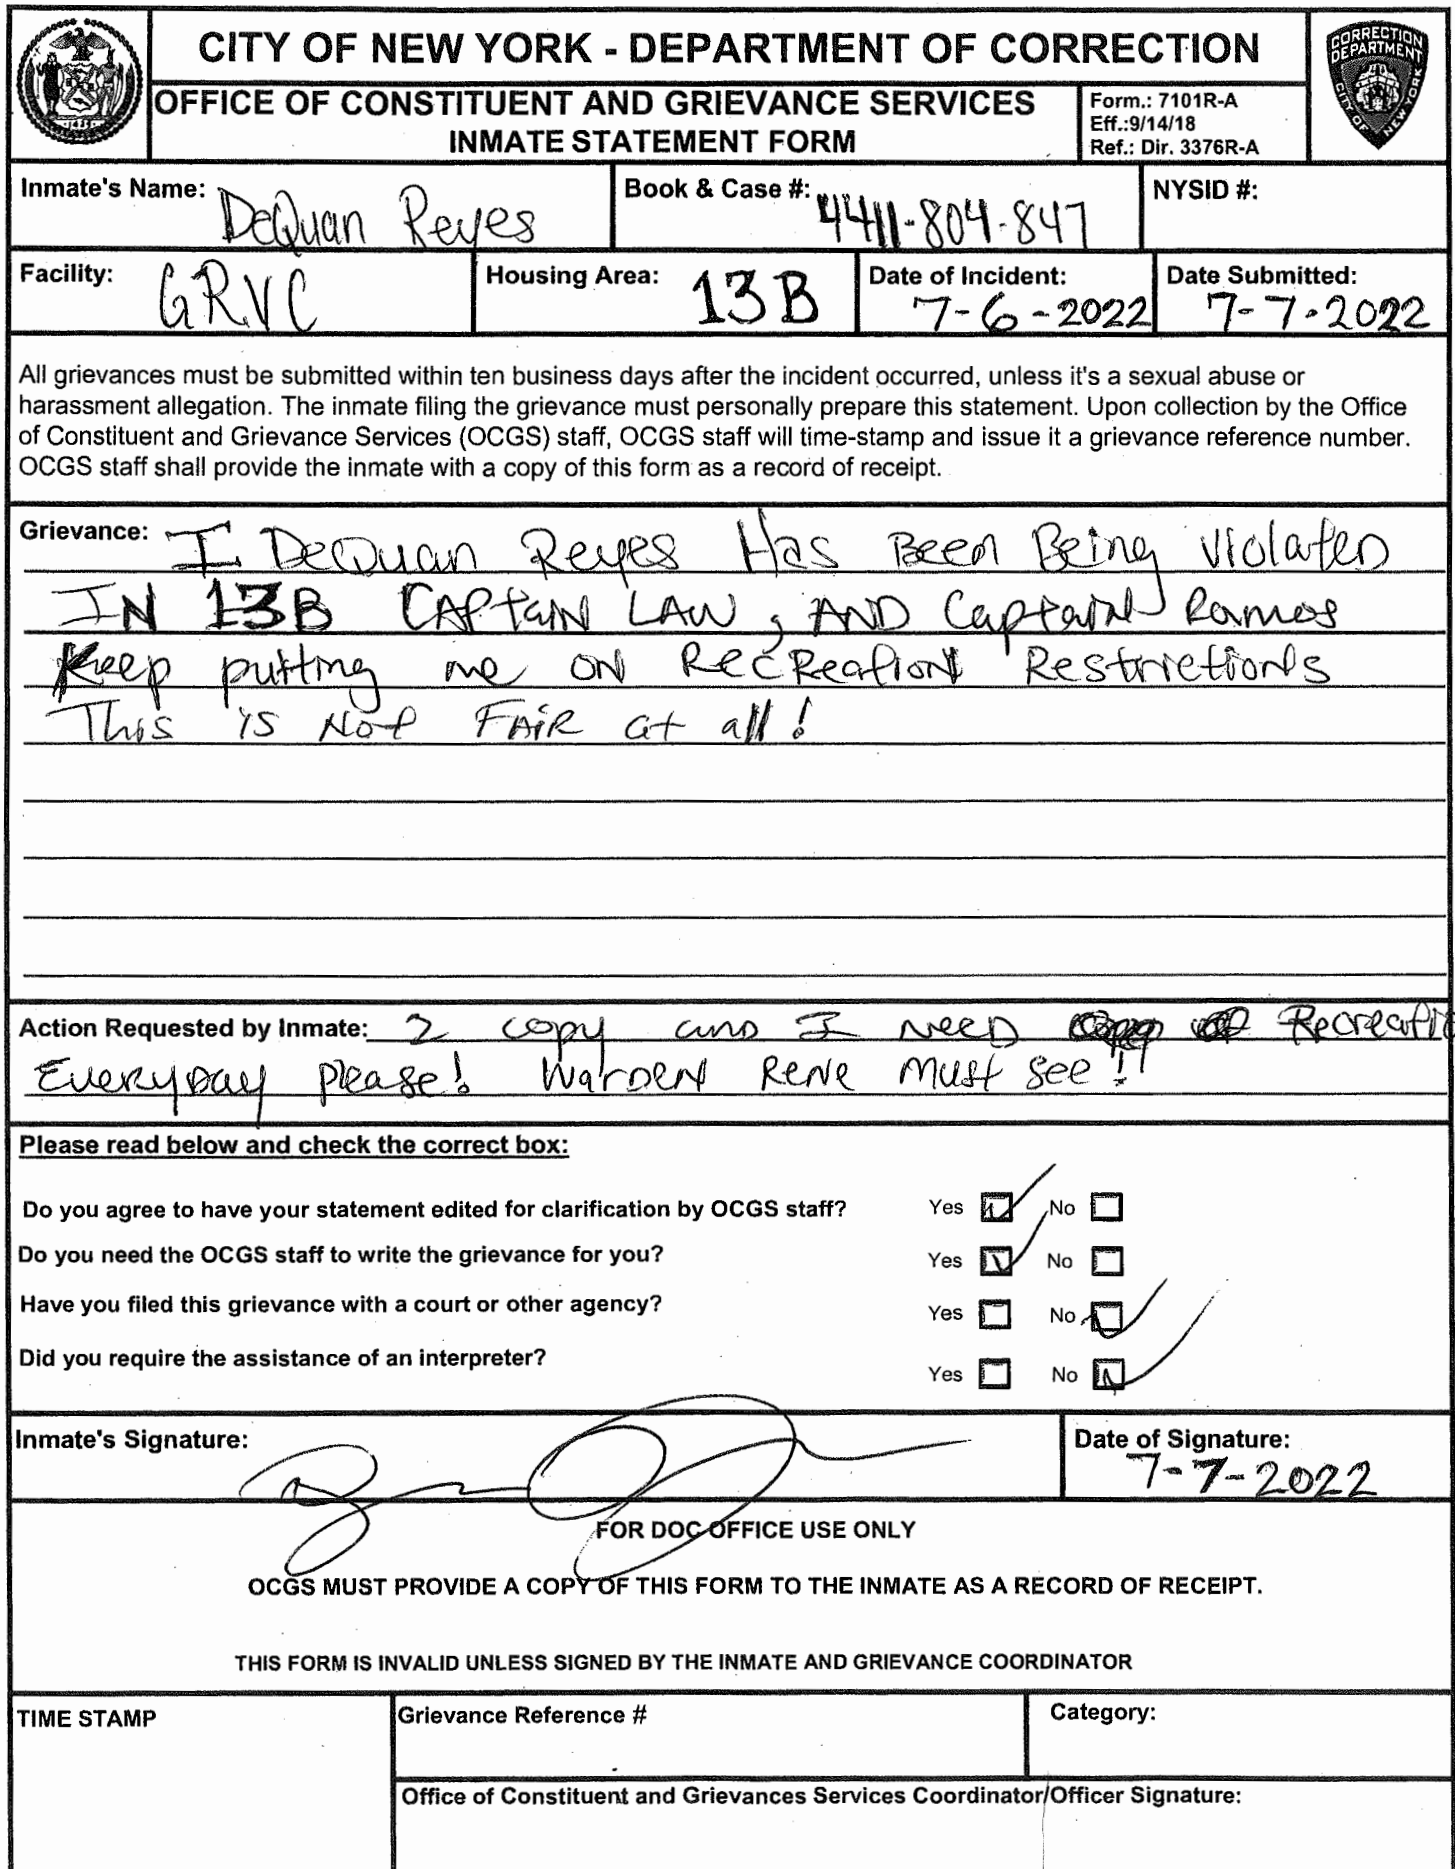 CITY OF NEW YORK - DEPARTMENT OF CORRECTION
OFFICE OF CONSTITUENT AND GRIEVANCE SERVICES
INMATE STATEMENT FORM
Form.: 7101R-A
Eff.:9/14/18
Ref.: Dir. 3376R-A
CORRECTION
DEPARTMENT
CITY OF NEW YORK
Inmate's Name: DeQuan Reyes
Book & Case #: 4411-804-847
NYSID #:
Facility: GRVC
Housing Area: 13B
Date of Incident: 7-6-2022
Date Submitted: 7-7-2022
All grievances must be submitted within ten business days after the incident occurred, unless it's a sexual abuse or
harassment allegation. The inmate filing the grievance must personally prepare this statement. Upon collection by the Office
of Constituent and Grievance Services (OCGS) staff, OCGS staff will time-stamp and issue it a grievance reference number.
OCGS staff shall provide the inmate with a copy of this form as a record of receipt.
Grievance: I DeQuan Reyes Has Been Being Violated
IN 13B CAPtaiN LAW, AND Captain Ramos
Keep putting me ON RecReation Restrictions
This is Not FAiR at all!
Action Requested by Inmate: 2 copy and I NEED Recreatio
Everyday please! Warden Rene Must see!!
Please read below and check the correct box:
Do you agree to have your statement edited for clarification by OCGS staff? Yes No
Do you need the OCGS staff to write the grievance for you? Yes No
Have you filed this grievance with a court or other agency? Yes No
Did you require the assistance of an interpreter? Yes No
Inmate's Signature:
Date of Signature: 7-7-2022
FOR DOC OFFICE USE ONLY
OCGS MUST PROVIDE A COPY OF THIS FORM TO THE INMATE AS A RECORD OF RECEIPT.
THIS FORM IS INVALID UNLESS SIGNED BY THE INMATE AND GRIEVANCE COORDINATOR
TIME STAMP
Grievance Reference #
Category:
Office of Constituent and Grievances Services Coordinator/Officer Signature: